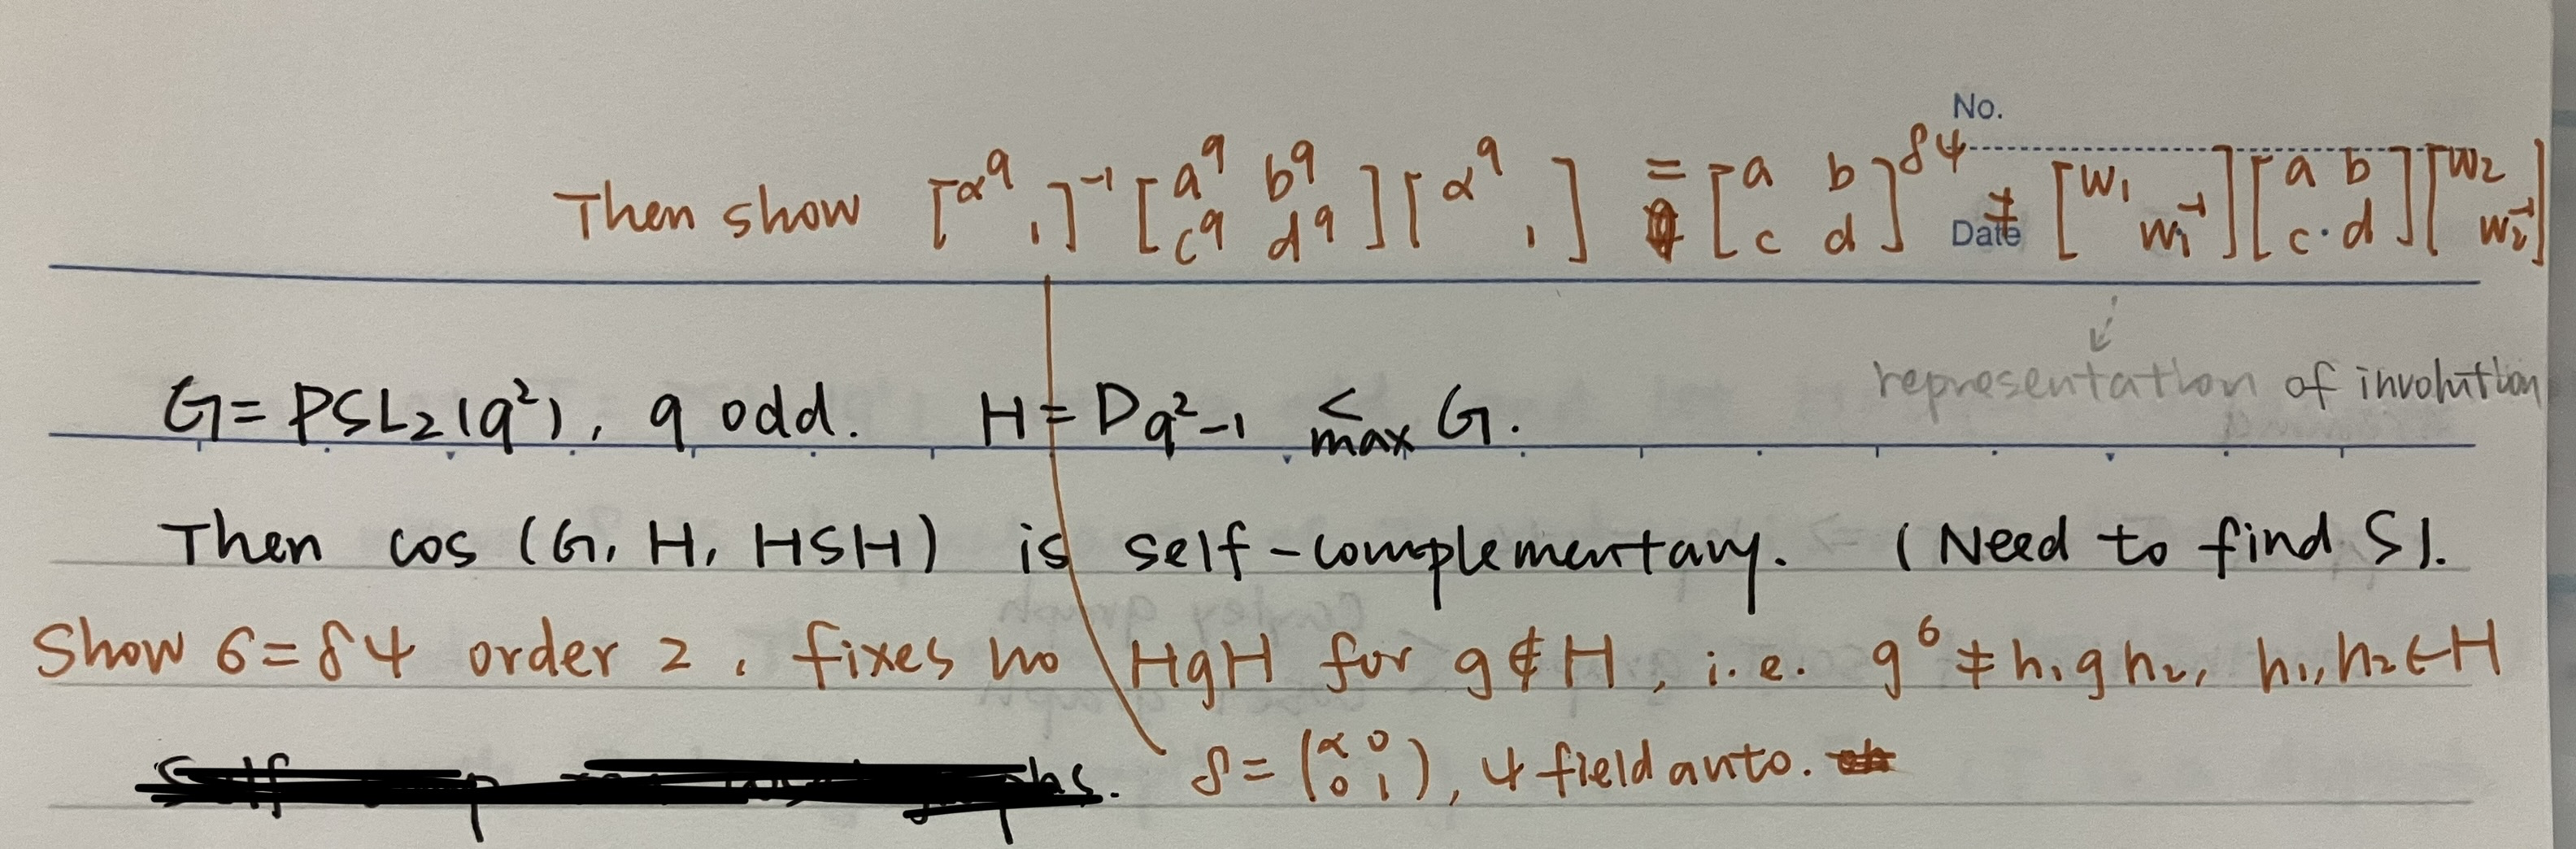 No.
Then show [α^q 1]^{-1} [a^q b^q c^q d^q] [α^q 1] = [a b c d]^{δψ} ≠ [w₁ w₁^{-1}] [a b c·d] [w₂ w₂^{-1}]
Date
representation of involution
G = PSL₂(q²), q odd. H = D_{q²-1} <_max G.
Then cos (G, H, HSH) is self-complementary. (Need to find S).
Show σ = δψ order 2, fixes no HgH for g ∉ H, i.e. g^σ ≠ h₁gh₂, h₁,h₂ ∈ H
δ = (α 0 0 1), ψ field auto.